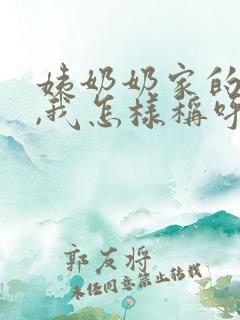 姨奶奶家的
,我怎样称呼
郭友将
未经同意禁止转载